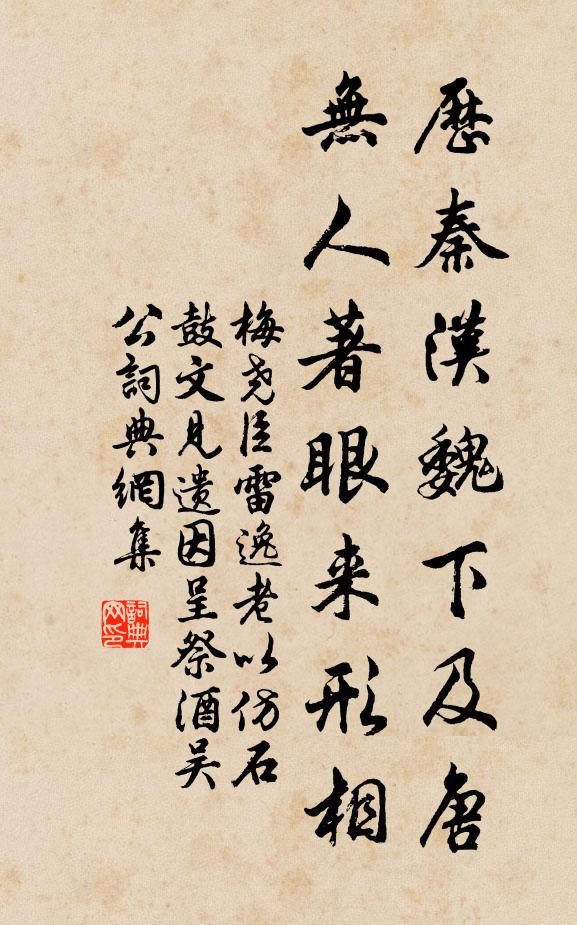 歷秦漢魏下及唐
無人著眼来形相
梅尧臣雷逸老以仿石
鼓文見遺因呈祭酒吴
公詞典網集
詞典
网印